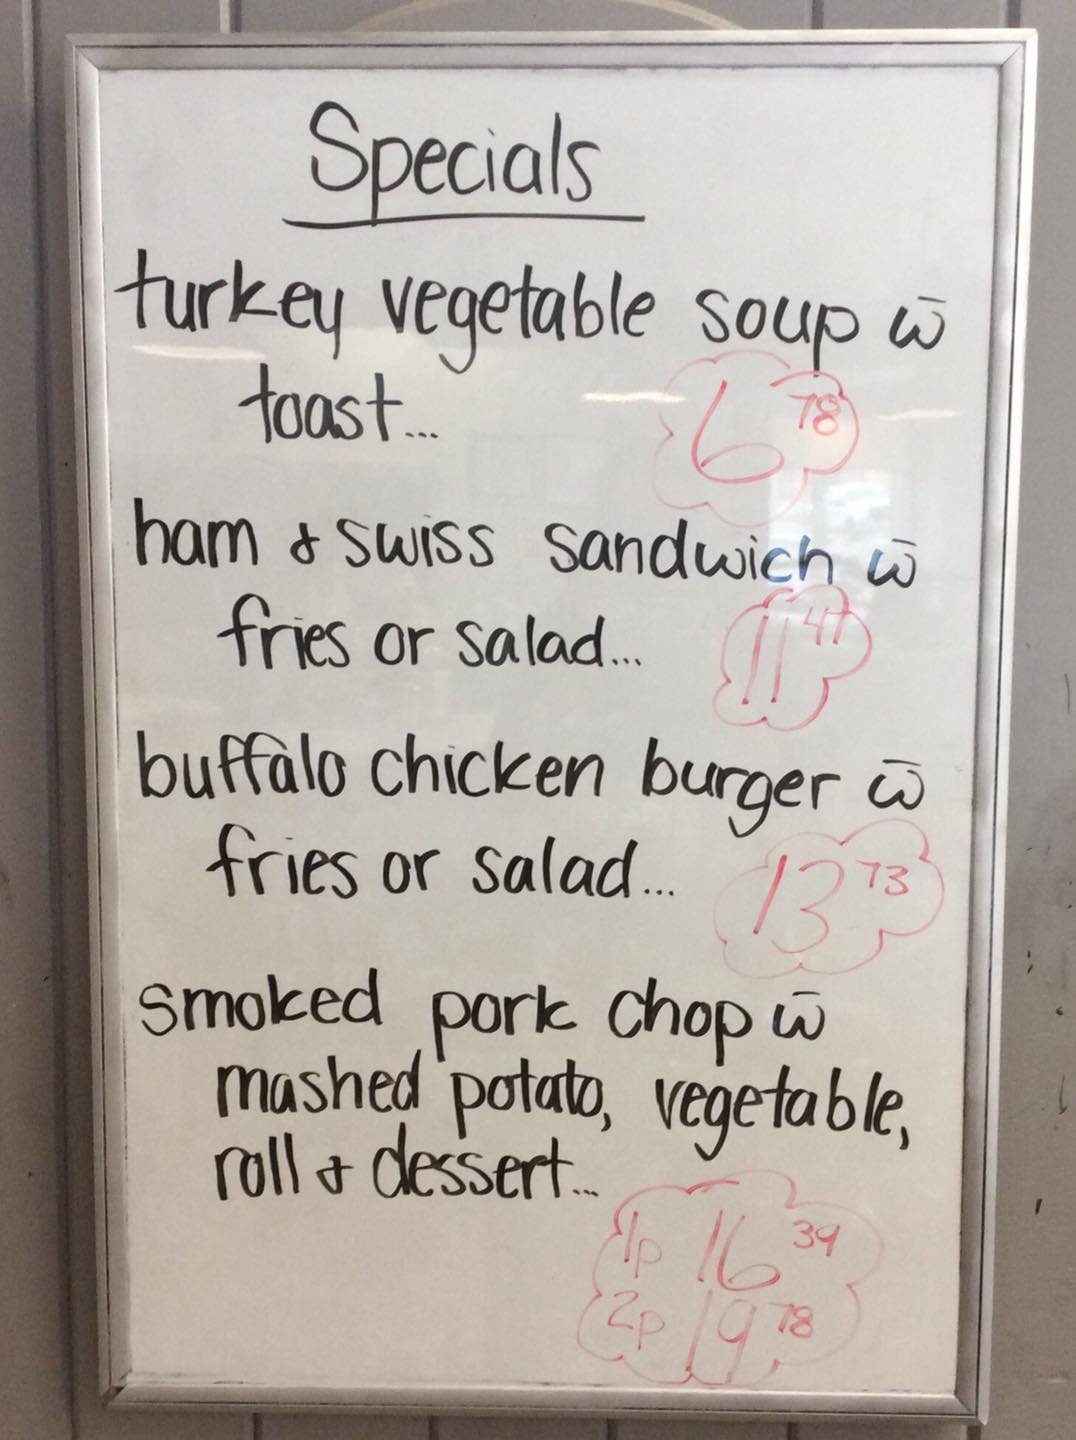 Specials
turkey vegetable soup w̄
toast...
6 78
ham & swiss sandwich w̄
fries or salad...
11 47
buffalo chicken burger w̄
fries or salad...
13 73
smoked pork chop w̄
mashed potato, vegetable,
roll & dessert...
1p 16 39
2p 19 78